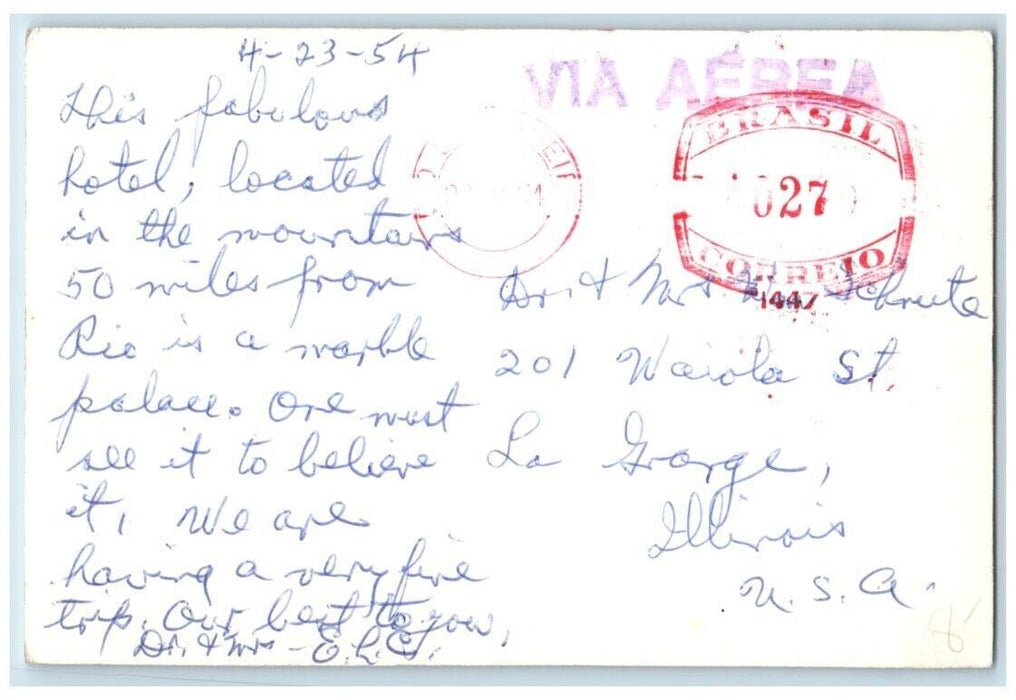 4-23-54
This fabulous
hotel, located
in the mountains
50 miles from
Rio is a marble
palace. One must
see it to believe
it, We are
having a very fine
trip. Our best to you,
Dr. & Mrs - E.L.C.
VIA AÉREA
BRASIL
027
CORREIO
1447
Dr. & Mrs. Schrute
201 Waiola St.
La Grange,
Illinois
U.S.A.
8